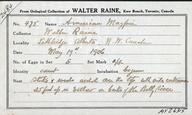 From Oological Collection of WALTER RAINE, Kew Beach, Toronto, Canada
No. 475 Name American Magpie
Collector Walter Raine
Locality Lethbridge Alberta N.W. Canada
Date May 19th 1906
No. of Eggs in Set 6 Set Mark 4/6
Identity sure Incubation begun
Nest sticks & weeds and mud
25 feet up in willow on banks of the Belly River